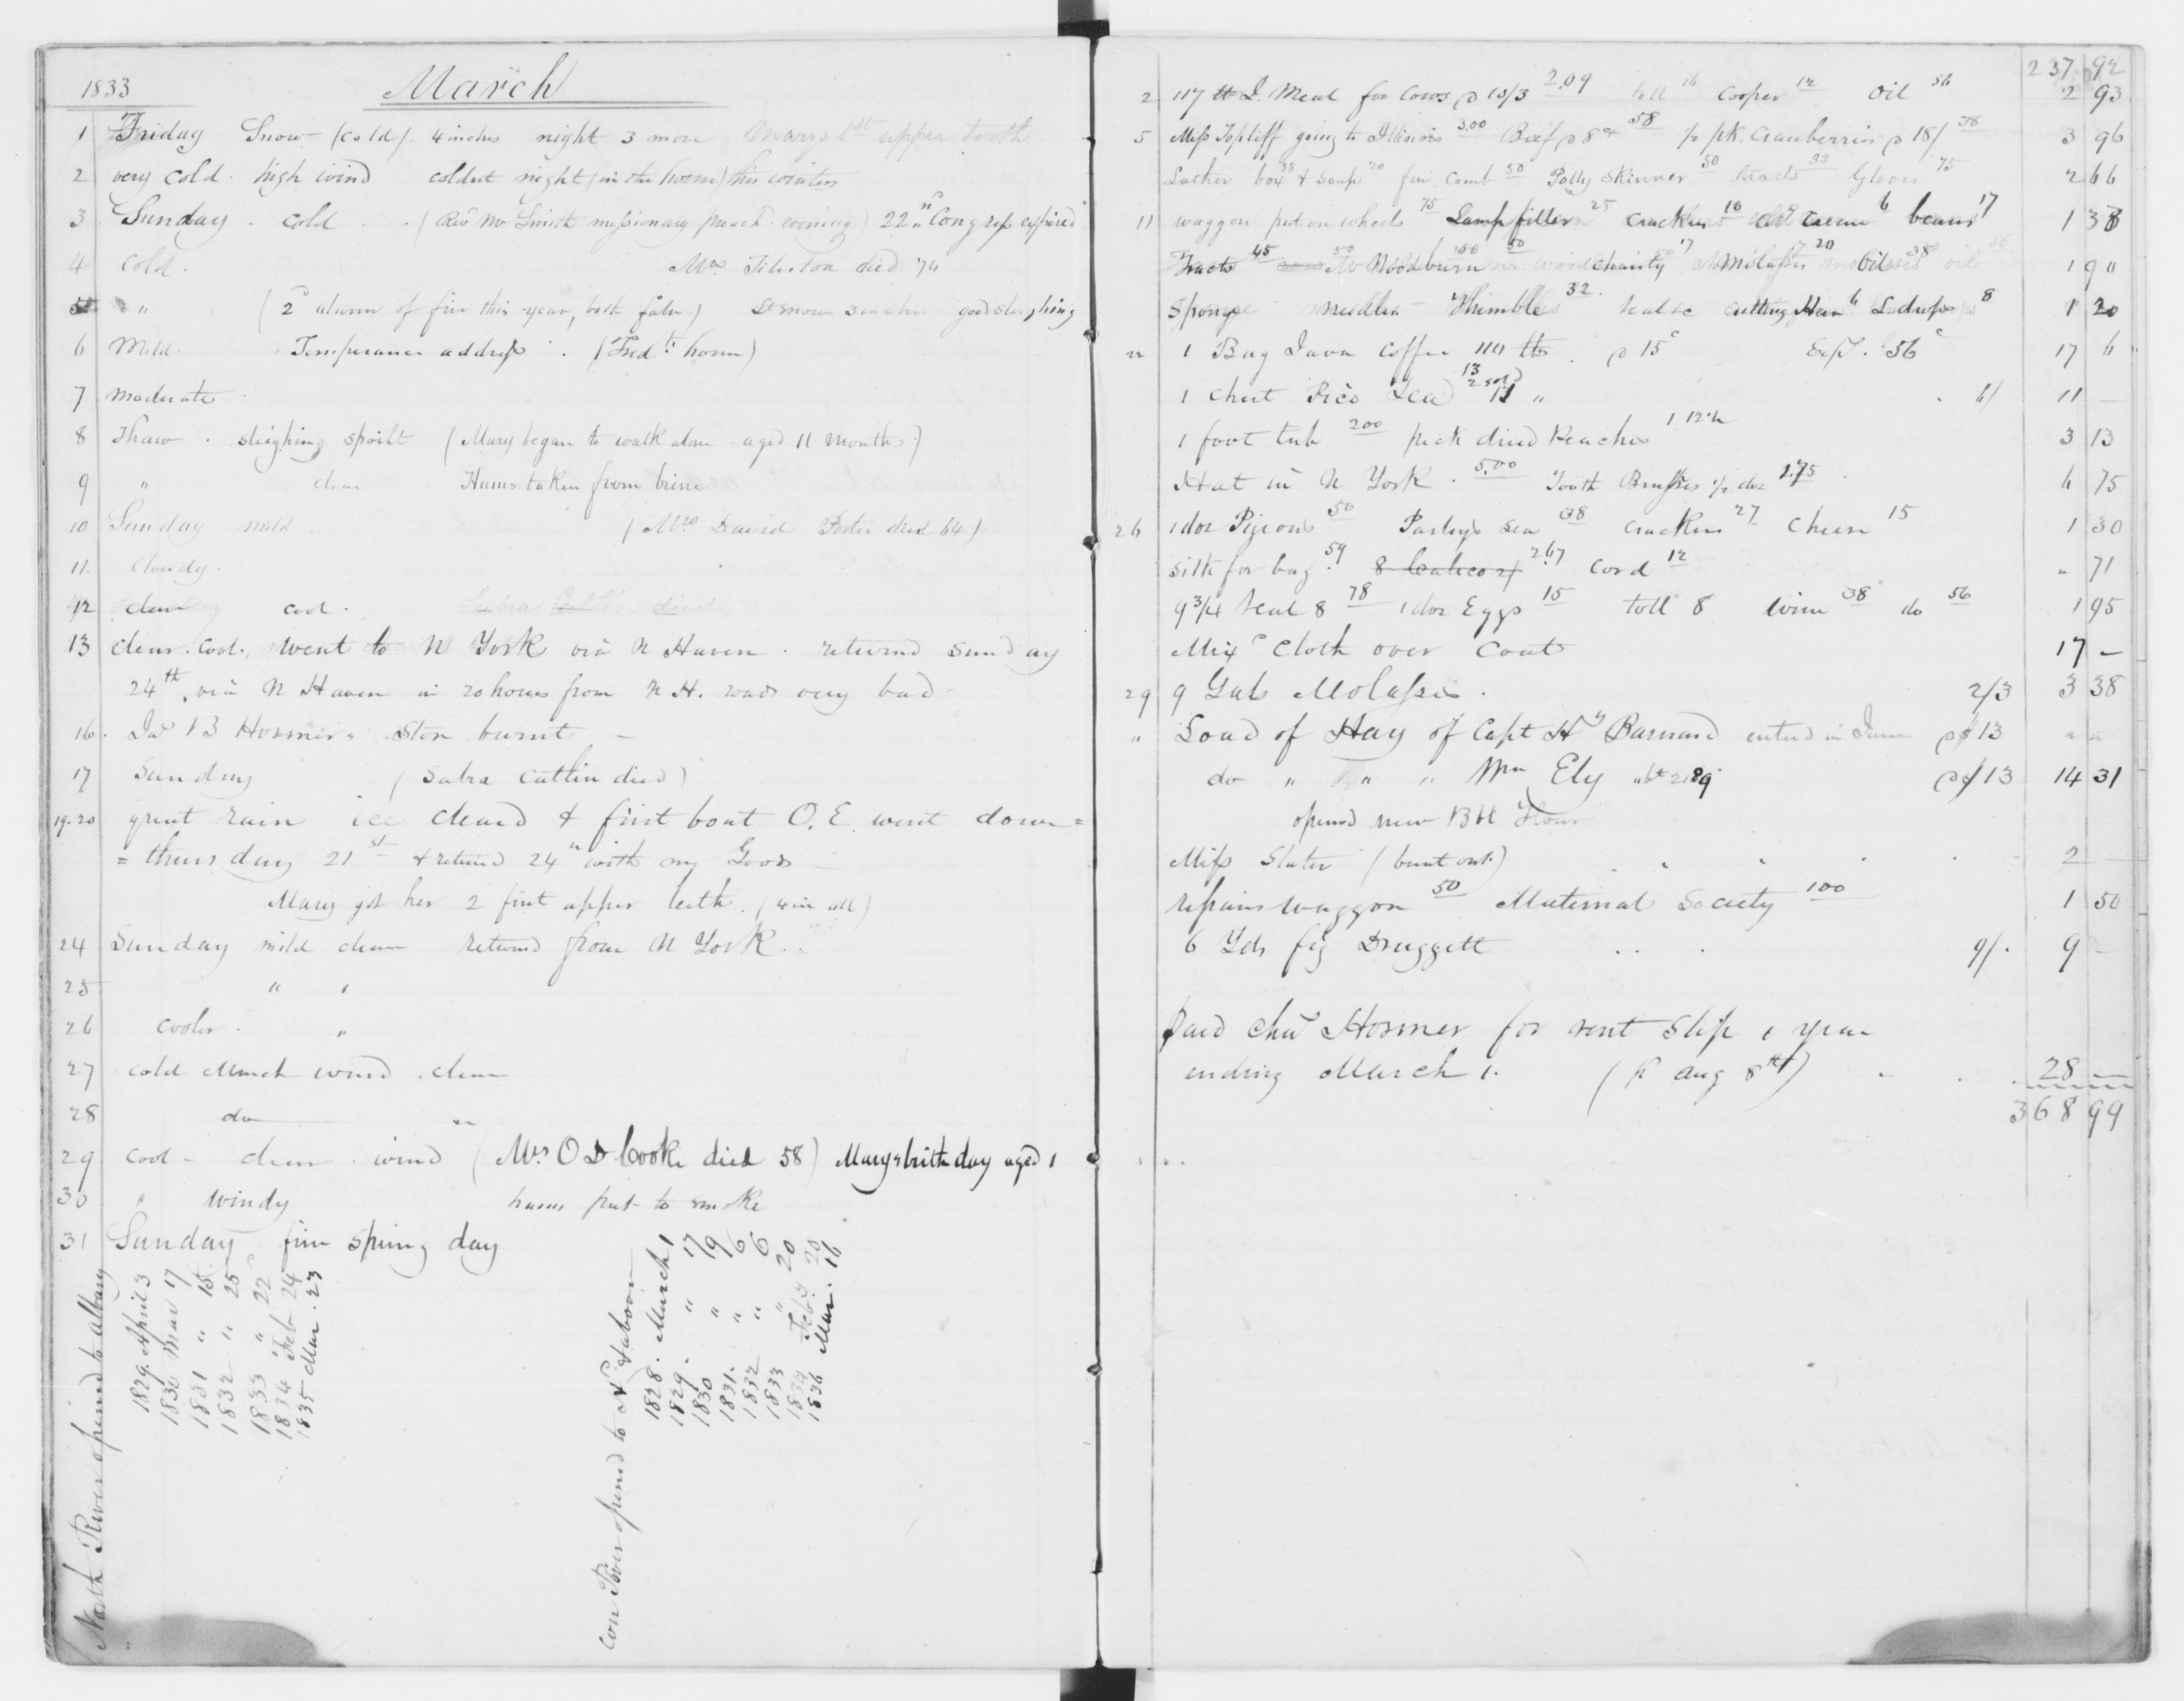 1833 March
1 Friday Snow - (cold). 4 inches night 3 more Marys 1st upper tooth
2 very cold. high wind coldest night (in the house) this winter
3 Sunday. cold. (Revd Mr Smith missionary preachd evening) 22nd Congress expired
4 Cold. Mrs Tileston died 74
5 " (2d alarm of fire this year, both false.) snow 3 inches good sleighing
6 Mild. Temperance address. (Fredks house)
7 moderate
8 Thaw. sleighing spoilt (Mary began to walk alone aged 11 months.)
9 " clear Hams taken from brine
10 Sunday mild (Mrs David Porter died 64)
11. Cloudy.
12 clear cool.
13 clear. Cool. went to N York via N Haven. returned Sunday
24th. via N Haven in 20 hours from N H. roads very bad
16. Jas B Hosmers Store burnt -
17 Sunday (Sabra Catlin died)
19.20 great rain ice cleard & first boat O. E. went down =
= thursday 21st & returned 24th with my Goods
Mary got her 2 first upper teeth. (4 in all)
24 Sunday mild clear returned from N York..
25 " "
26 cooler. "
27 cold March wind. clear
28 do "
29 cool - clear. wind (Mrs O D Cooke died 58) Marys birth day aged 1
30 " windy hams put to smoke
31 Sunday fine spring day
North River opened to albany
1829. April 3
1830 Mar 17
1831 " 15
1832 " 25
1833 " 22
1834 Feb 24
1835 Mar. 23
Con River opened to
1828. March 1
1829. " 17
1830 " 9
1831. " 6
1832 " 6
1833 " 20
1834 Feby 20
1836 Mar. 16
237 92
2 117 lb I. Meal for Cows @ 10/3 2.09 toll 16 Cooper 12 Oil 56 2 93
5 Miss Topliff going to Illinois 3.00 Beef @ 8c 58 1/2 pk. Cranberries @ 18/ 38 3 96
Lather box 38 & Soap 20 fine Comb 50 Polly Skinner 50 tracts 33 Gloves 75 2 66
11 waggon put on wheels 75 Lamp filler 25 crackers 16 cream 6 beans 17 1 38
Tracts 45 Woodburn 50 charity 17 Molasses 20 oil 38 1 90
Sponge needles - Thimble 32. cutting Hair 6 8 1 20
22 1 Bag Java Coffee 110 lbs. @ 15c Exp. 56c 17 6
1 Chest Pico Tea 13 " 6/ 11 -
1 foot tub 200 peck dried Peaches 1 12 1/2 3 13
Hat in N York. 5.00 Tooth Brushes 1/2 doz 1.75 6 75
26 1 doz Pigeons 50 Parleys Sea 38 crackers 27 Cheese 15 1 30
silk for bag. 59 8 Calico 2/ 2.67 Cord 12 - 71
9 3/4 Veal 8 78 1 doz Eggs 15 toll 8 wine 38 do 56 1 95
Mixd Cloth over Coat 17 -
29 9 Gals Molasses. 2/3 3 38
" Load of Hay of Capt Hy Barnard entered in June @ $13 " "
do " " " Wm Ely wt 2189 @ $13 14 31
opened new Bbl Flour
Miss Slater (burnt out.) 2 -
repairs waggon 50 Maternal Society 100 1 50
6 Yds fig Druggett 9/. 9 -
paid Chas Hosmer for rent Slip 1 year
ending March 1. (pd aug 8th) 28 -
368 99